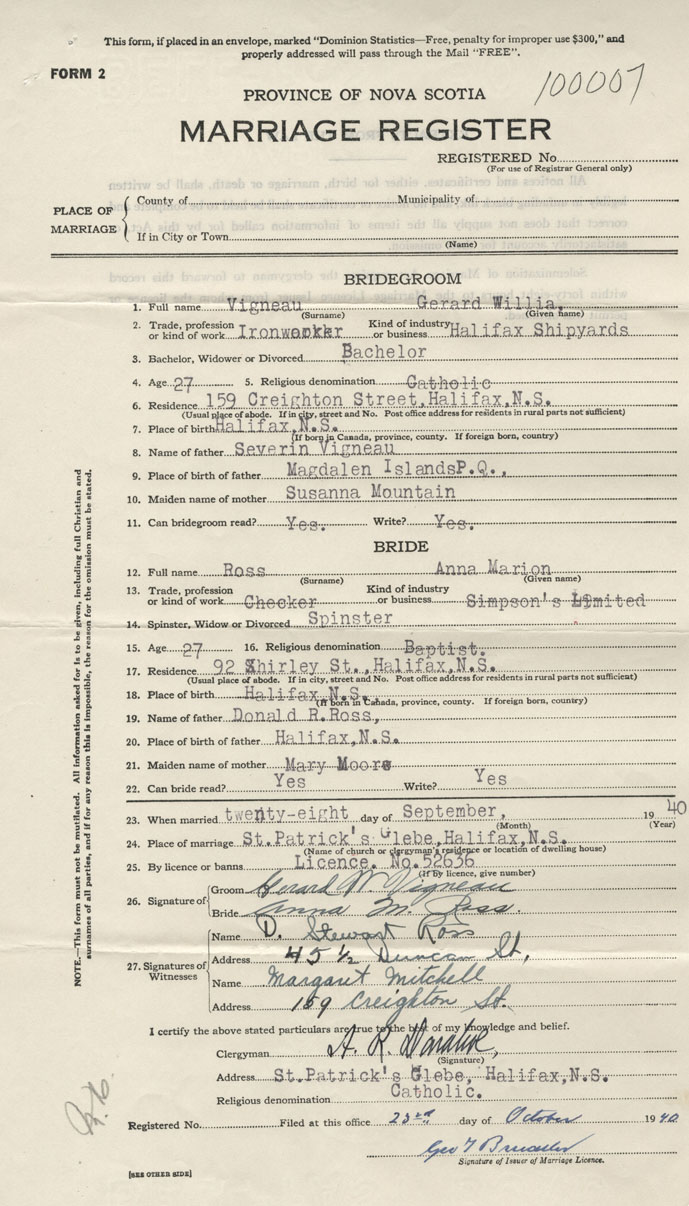 This form, if placed in an envelope, marked "Dominion Statistics—Free, penalty for improper use $300," and
properly addressed will pass through the Mail "FREE".
FORM 2
100007
PROVINCE OF NOVA SCOTIA
MARRIAGE REGISTER
REGISTERED No.
(For use of Registrar General only)
PLACE OF MARRIAGE
County of Municipality of
If in City or Town
(Name)
BRIDEGROOM
1. Full name Vigneau Gerard Willia.
(Surname) (Given name)
2. Trade, profession or kind of work Ironworker Kind of industry or business Halifax Shipyards
3. Bachelor, Widower or Divorced Bachelor
4. Age 27 5. Religious denomination Catholic
6. Residence 159 Creighton Street, Halifax, N.S.
(Usual place of abode. If in city, street and No. Post office address for residents in rural parts not sufficient)
7. Place of birth Halifax, N.S.
(If born in Canada, province, county. If foreign born, country)
8. Name of father Severin Vigneau
9. Place of birth of father Magdalen Islands P.Q.,
10. Maiden name of mother Susanna Mountain
11. Can bridegroom read? Yes. Write? Yes.
BRIDE
12. Full name Ross Anna Marion
(Surname) (Given name)
13. Trade, profession or kind of work Checker Kind of industry or business Simpson's Limited
14. Spinster, Widow or Divorced Spinster
15. Age 27 16. Religious denomination Baptist.
17. Residence 92 Shirley St., Halifax, N.S.
(Usual place of abode. If in city, street and No. Post office address for residents in rural parts not sufficient)
18. Place of birth Halifax, N.S.
(If born in Canada, province, county. If foreign born, country)
19. Name of father Donald R. Ross,
20. Place of birth of father Halifax, N.S.
21. Maiden name of mother Mary Moore
22. Can bride read? Yes Write? Yes
23. When married twenty-eight day of September, 1940
(Month) (Year)
24. Place of marriage St. Patrick's Glebe, Halifax, N.S.
(Name of church or clergyman's residence or location of dwelling house)
25. By licence or banns Licence. No. 52636
(If by licence, give number)
26. Signature of
Groom Gerard W. Vigneau
Bride Anna M. Ross.
27. Signatures of Witnesses
Name D. Stewart Ross
Address 45½ Duncan St,
Name Margaret Mitchell
Address 159 Creighton St.
I certify the above stated particulars are true to the best of my knowledge and belief.
Clergyman A. R. Donahoe,
(Signature)
Address St. Patrick's Glebe, Halifax, N.S.
Religious denomination Catholic.
Registered No. Filed at this office 23rd day of October 1940
Signature of Issuer of Marriage Licence.
[SEE OTHER SIDE]
NOTE.—This form must not be mutilated. All information asked for is to be given, including full Christian and
surnames of all parties, and if for any reason this is impossible, the reason for the omission must be stated.